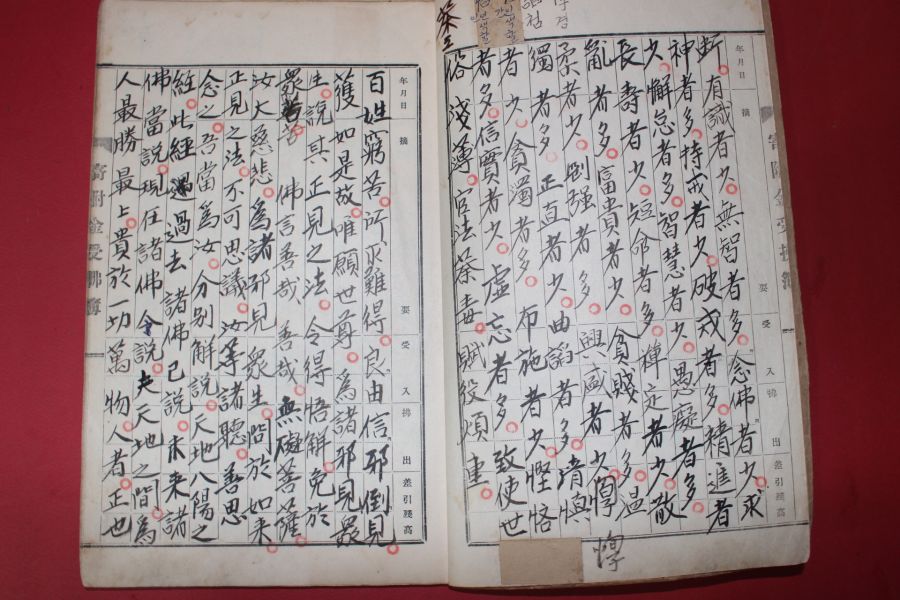 斷有識者少無智者多念佛者少求
神者多持戒者少破戒者多精進者
少懈怠者多智慧者少愚癡者多
長壽者少短命者多禪定者少散
亂者多富貴者少貧賤者多溫
柔者少剛强者多興盛者少惸
獨者多正直者少曲諂者多淸愼
者少貪濁者多布施者少慳悋
者多信實者少虛妄者多致使世
俗淺薄官法荼毒賦役煩重
惸
荼
年月日
摘
要
受入
拂出
差引殘高
百姓窮苦所求難得良由信邪倒見
獲如是故唯願世尊爲諸邪見衆
生說其正見之法令得悟解免於
衆苦佛言善哉善哉無礙菩薩
汝大慈悲爲諸邪見衆生問於如來
正見之法不可思議汝等諸聽善思
念之吾當爲汝分別解說天地八陽之
經此經過過去諸佛已說未來諸
佛當說現在諸佛今說夫天地之間爲
人最勝最上貴於一切萬物人者正也
年月日
摘
要
受入
拂出
差引殘高
寄附金受拂簿